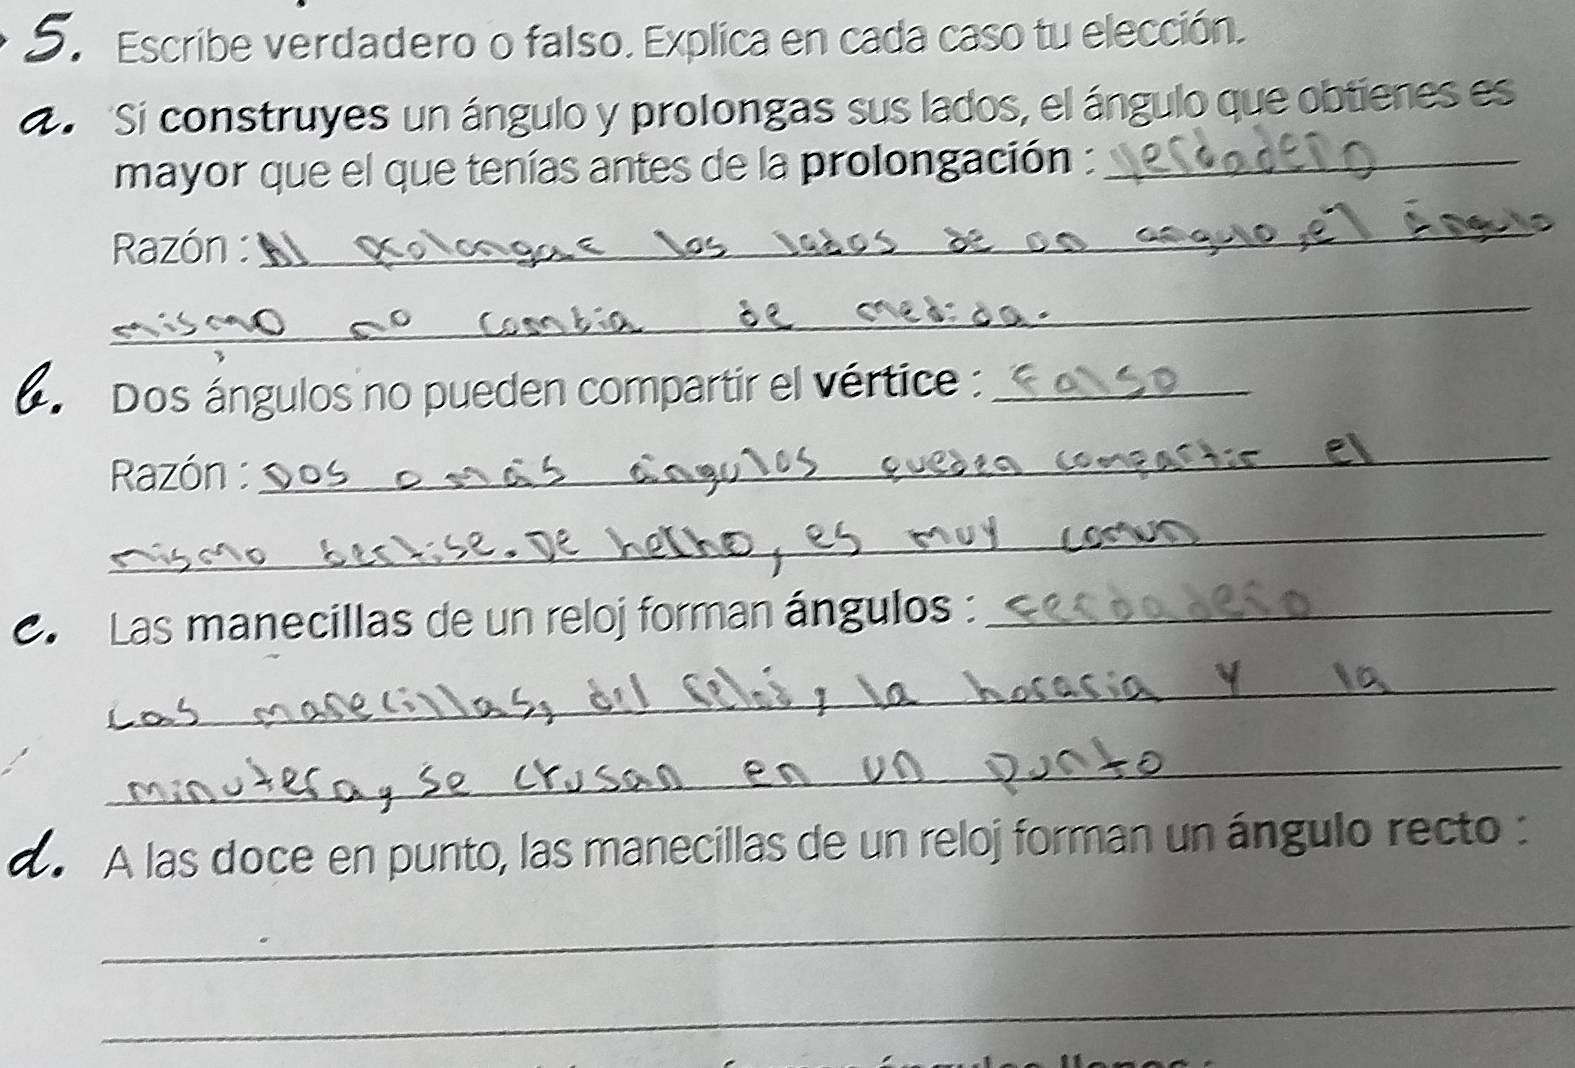 5. Escribe verdadero o falso. Explica en cada caso tu elección.
a. Si construyes un ángulo y prolongas sus lados, el ángulo que obtienes es
mayor que el que tenías antes de la prolongación : verdadero
Razón : Al prolongar los lados de un angulo, el ángulo
mismo no cambia de medida.
b. Dos ángulos no pueden compartir el vértice : Falso
Razón : Dos o más ángulos pueden compartir el
mismo bertise. De hecho, es muy comun
c. Las manecillas de un reloj forman ángulos : verdadero
Las manecillas, del reloj, la horaria y la
minutera, se crusan en un punto
d. A las doce en punto, las manecillas de un reloj forman un ángulo recto :